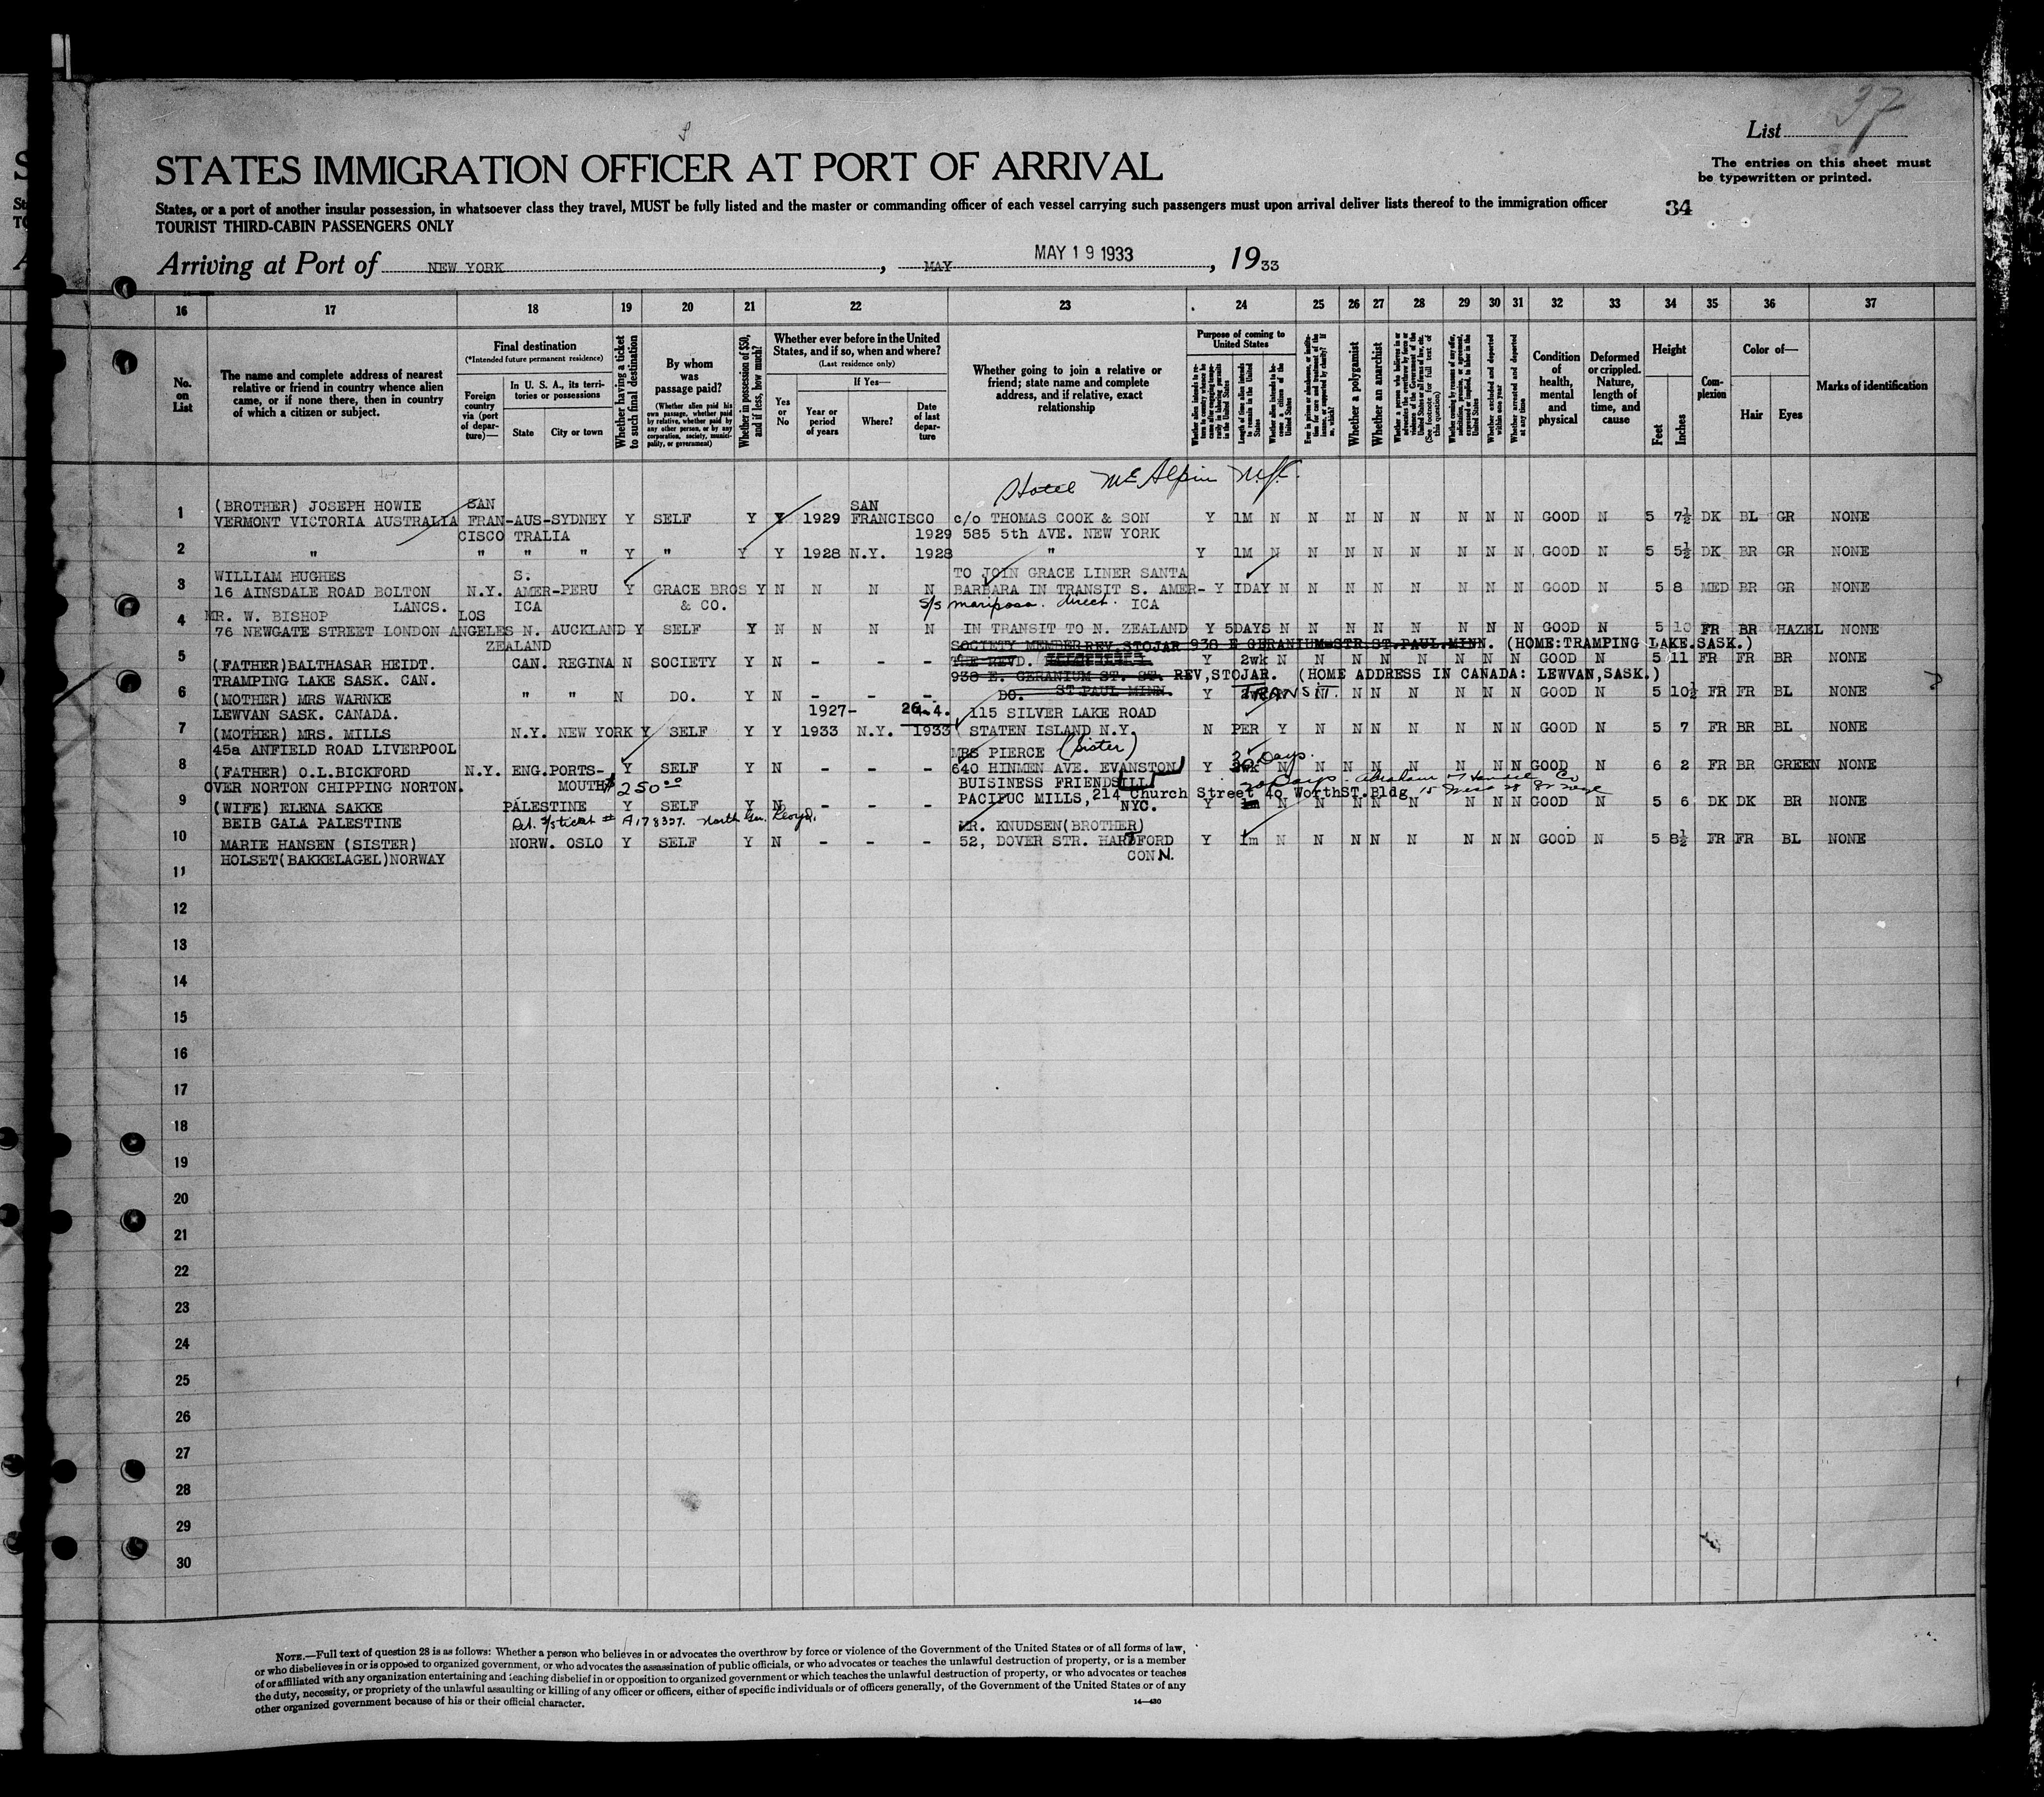 37
List
STATES IMMIGRATION OFFICER AT PORT OF ARRIVAL
The entries on this sheet must
be typewritten or printed.
States, or a port of another insular possession, in whatsoever class they travel, MUST be fully listed and the master or commanding officer of each vessel carrying such passengers must upon arrival deliver lists thereof to the immigration officer
34
TOURIST THIRD-CABIN PASSENGERS ONLY
Arriving at Port of NEW YORK, MAY MAY 19 1933, 1933
16 17 18 19 20 21 22 23 24 25 26 27 28 29 30 31 32 33 34 35 36 37
No. on List
The name and complete address of nearest relative or friend in country whence alien came, or if none there, then in country of which a citizen or subject.
Final destination
(*Intended future permanent residence)
Foreign country via (port of departure)—
In U. S. A., its territories or possessions
State
City or town
Whether having a ticket to such final destination
By whom was passage paid?
(Whether alien paid his own passage, whether paid by relative, whether paid by any other person, or by any corporation, society, municipality, or government)
Whether in possession of $50, and if less, how much?
Whether ever before in the United States, and if so, when and where?
(Last residence only)
Yes or No
If Yes—
Year or period of years
Where?
Date of last departure
Whether going to join a relative or friend; state name and complete address, and if relative, exact relationship
Purpose of coming to United States
Length of time alien intends to remain in the United States
Whether alien intends to become a citizen of the United States
Whether a polygamist
Whether an anarchist
Whether excluded and deported within one year
Whether arrested and deported at any time
Condition of health, mental and physical
Deformed or crippled. Nature, length of time, and cause
Height
Feet
Inches
Complexion
Color of—
Hair
Eyes
Marks of identification
Hotel McAlpin N.Y.
(BROTHER) JOSEPH HOWIE SAN SAN
1 VERMONT VICTORIA AUSTRALIA FRAN-AUS-SYDNEY Y SELF Y Y 1929 FRANCISCO c/o THOMAS COOK & SON Y 1M N N N N N N N N GOOD N 5 7½ DK BL GR NONE
CISCO TRALIA 1929 585 5th AVE. NEW YORK
2 " " " " Y " Y Y 1928 N.Y. 1928 " Y 1M N N N N N N N N GOOD N 5 5½ DK BR GR NONE
WILLIAM HUGHES S. TO JOIN GRACE LINER SANTA
3 16 AINSDALE ROAD BOLTON N.Y. AMER-PERU Y GRACE BROS Y N N N N BARBARA IN TRANSIT S. AMER- Y 1DAY N N N N N N N N GOOD N 5 8 MED BR GR NONE
LANCS. ICA & CO. S/s mariposa. direct. ICA
4 MR. W. BISHOP LOS
76 NEWGATE STREET LONDON ANGELES N. AUCKLAND Y SELF Y N N N N IN TRANSIT TO N. ZEALAND Y 5DAYS N N N N N N N N GOOD N 5 10 FR BR HAZEL NONE
ZEALAND SOCIETY MEMBER REV.STOJAR 938 E GERANIUM STR.ST.PAUL.MINN. (HOME:TRAMPING LAKE.SASK.)
5 (FATHER)BALTHASAR HEIDT. CAN. REGINA N SOCIETY Y N - - - THE REVD. Y 2wk N N N N N N N N GOOD N 5 11 FR FR BR NONE
TRAMPING LAKE SASK. CAN. 938 E. GERANIUM ST. ST. REV,STOJAR. (HOME ADDRESS IN CANADA: LEWVAN,SASK.)
6 (MOTHER) MRS WARNKE " " N DO. Y N - - - DO. ST.PAUL MINN. Y TRANSIT. N N N N N N N GOOD N 5 10½ FR FR BL NONE
LEWVAN SASK. CANADA. 1927- 26.4. 115 SILVER LAKE ROAD
7 (MOTHER) MRS. MILLS N.Y. NEW YORK Y SELF Y Y 1933 N.Y. 1933 STATEN ISLAND N.Y. N PER Y N N N N N N N GOOD N 5 7 FR BR BL NONE
45a ANFIELD ROAD LIVERPOOL MRS PIERCE (Sister)
8 (FATHER) O.L.BICKFORD N.Y. ENG.PORTS- Y SELF Y N - - - 640 HINMEN AVE. EVANSTON Y 30 Days. N N N N N N N N GOOD N 6 2 FR BR GREEN NONE
OVER NORTON CHIPPING NORTON. MOUTH $250.00 BUISINESS FRIENDS ILL
9 (WIFE) ELENA SAKKE PALESTINE Y SELF Y N - - - PACIFUC MILLS, 214 Church Street 40 WorthST.Bldg
NYC. Y 1m N N N N N N N N GOOD N 5 6 DK DK BR NONE
BEIB GALA PALESTINE A178327. North Ger. Lloyd. MR. KNUDSEN(BROTHER)
10 MARIE HANSEN (SISTER) NORW. OSLO Y SELF Y N - - - 52, DOVER STR. HARTFORD Y 1m N N N N N N N N GOOD N 5 8½ FR FR BL NONE
HOLSET(BAKKELAGEL)NORWAY CONN.
11
12
13
14
15
16
17
18
19
20
21
22
23
24
25
26
27
28
29
30
NOTE.—Full text of question 28 is as follows: Whether a person who believes in or advocates the overthrow by force or violence of the Government of the United States or of all forms of law,
or who disbelieves in or is opposed to organized government, or who advocates the assassination of public officials, or who advocates or teaches the unlawful destruction of property, or is a member
of or affiliated with any organization entertaining and teaching disbelief in or opposition to organized government or which teaches the unlawful destruction of property, or who advocates or teaches
the duty, necessity, or propriety of the unlawful assaulting or killing of any officer or officers, either of specific individuals or of officers generally, of the Government of the United States or of any
other organized government because of his or their official character.
14—430